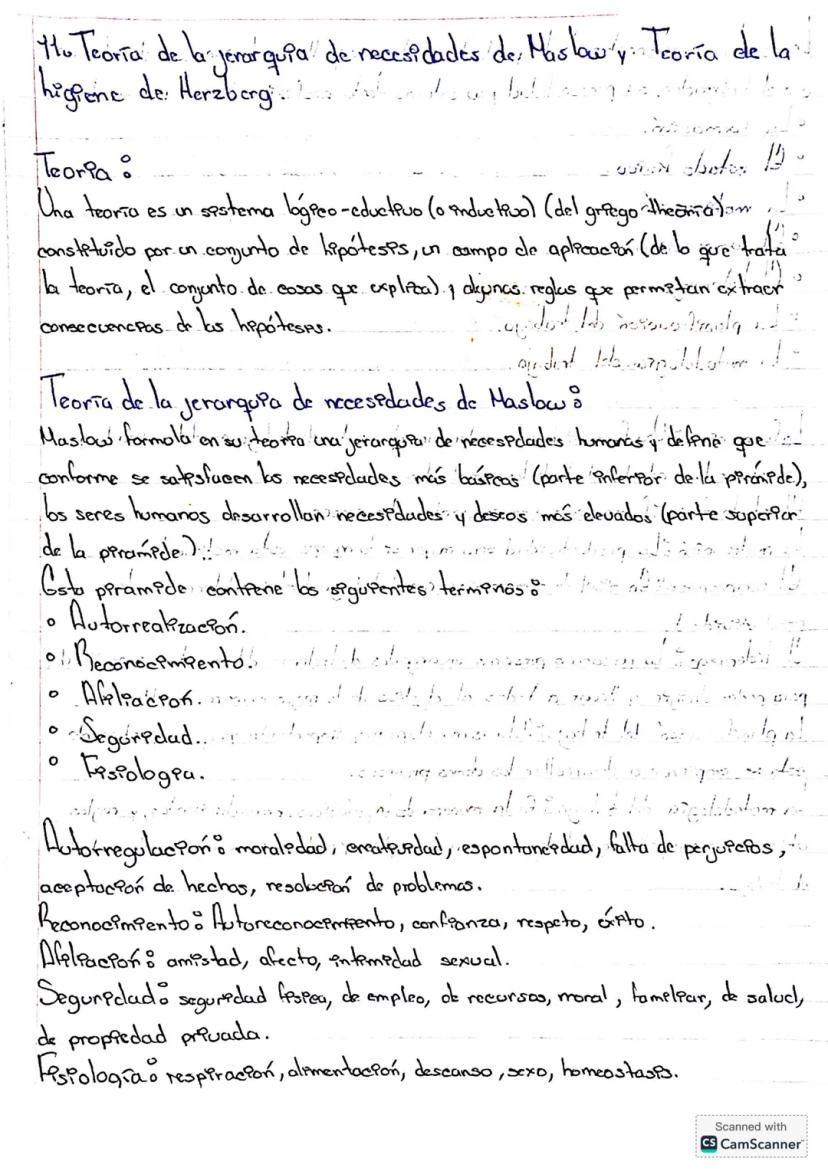 11. Teoría de la jerarquia de necesidades de Maslow y Teoría de la
higiene de Herzberg.
Teoria:
Una teoría es un sistema lógico-eductivo (o inductivo) (del griego theoria)
constituido por un conjunto de hipótesis, un campo de aplicación (de lo que trata
la teoría, el conjunto de cosas que explica) y algunos reglas que permitan extraer
consecuencias de las hipótesis.
Teoría de la jerarquia de necesidades de Maslow:
Maslow formola en su teoria una jerarquia de necesidades humanas y define que
conforme se satisfacen las necesidades más básicas (parte inferior de la pirámide),
los seres humanos desarrollan necesidades y deseos más elevados (parte superior
de la piramide).
Esta piramide contiene los siguientes terminos:
• Autorrealización.
• Reconocimiento.
• Afiliacion.
• Seguridad.
• Fisiologia.
Autorregulación: moralidad, creatividad, espontaneidad, falta de perjuicios,
aceptación de hechos, resolución de problemas.
Reconocimiento: Autoreconocimiento, confianza, respeto, éxito.
Afiliación: amistad, afecto, intimidad sexual.
Seguridad: seguridad fisica, de empleo, de recursos, moral, familiar, de salud,
de propiedad privada.
Fisiología: respiración, alimentación, descanso, sexo, homeostasis.
Scanned with
CS CamScanner